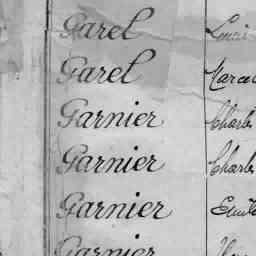 Garel Louis
Garel Marcel
Garnier Charles
Garnier Charles
Garnier Emile
Garnier